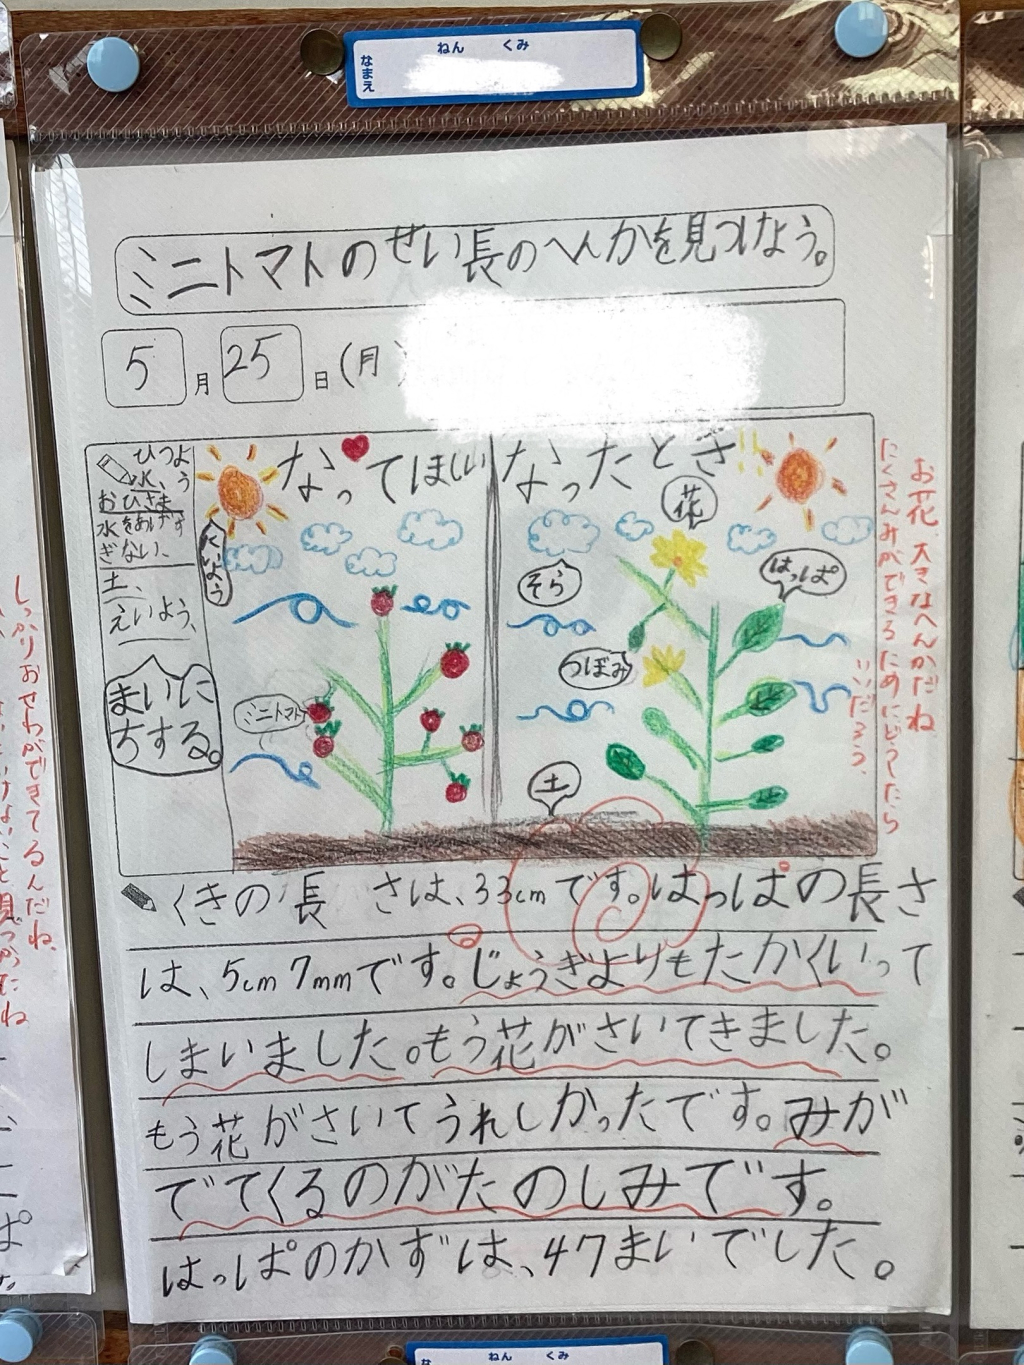 ねん くみ
なまえ
ミニトマトのせい長のへんかを見つけよう。
5月25日(月)
ひつよう
水、
おひさま
水をあげす
ぎない、
土、
えいよう、
まいに
ちする。
なってほしい
ミニトマト
なったとき
花
はっぱ
そら
つぼみ
土
お花、大きなへんかだね
たくさんみができるためにどうしたら
いいだろう、
くきの長さは、33cmです。はっぱの長さ
は、5cm7mmです。じょうぎよりもたかくいって
しまいました。もう花がさいてきました。
もう花がさいてうれしかったです。みが
でてくるのがたのしみです。
はっぱのかずは、47まいでした。
しっかりおせわができてるんだね、
ねん くみ